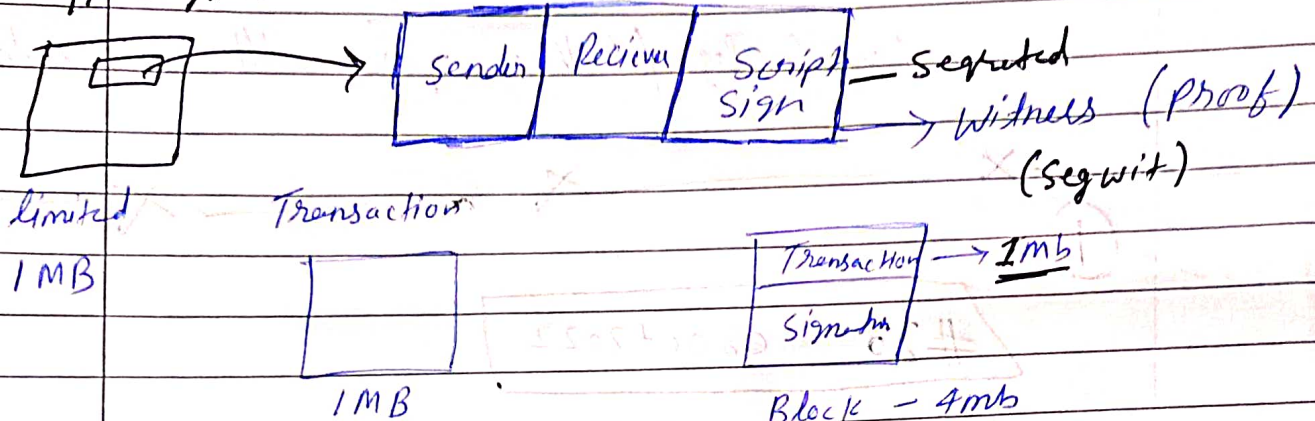 Sender Reciever Script Sign — Segreted
→ Witness (Proof)
(Segwit)
limited Transaction
1 MB
Transaction → 1mb
Signature
1 MB Block - 4mb